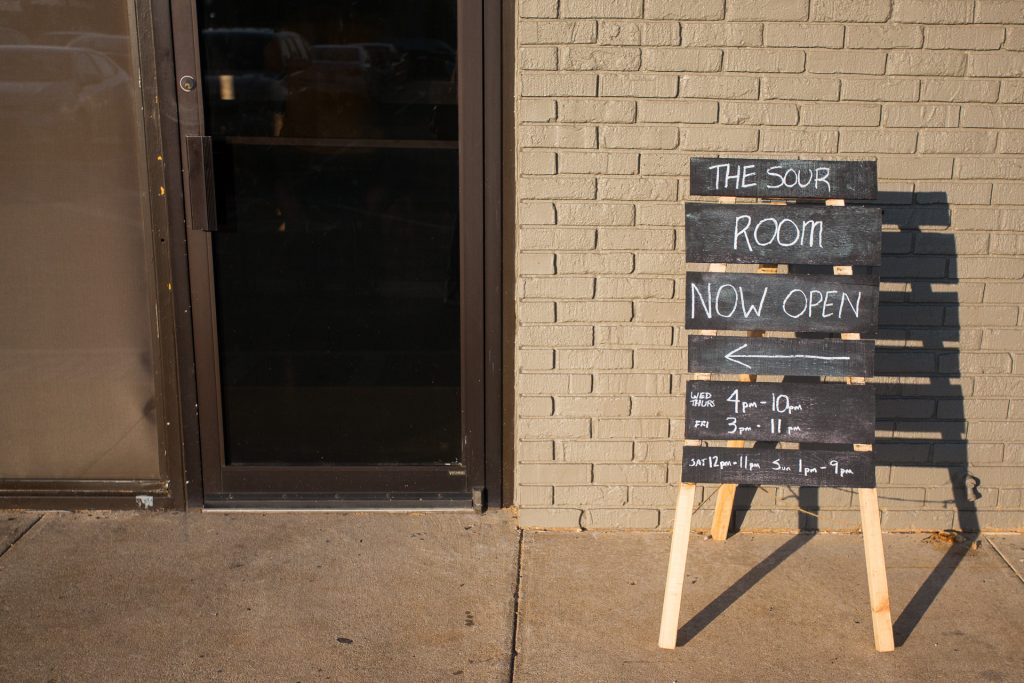 THE SOUR
ROOM
NOW OPEN
WED THURS 4pm - 10pm
FRI 3pm - 11pm
SAT 12pm - 11pm SUN 1pm - 9pm